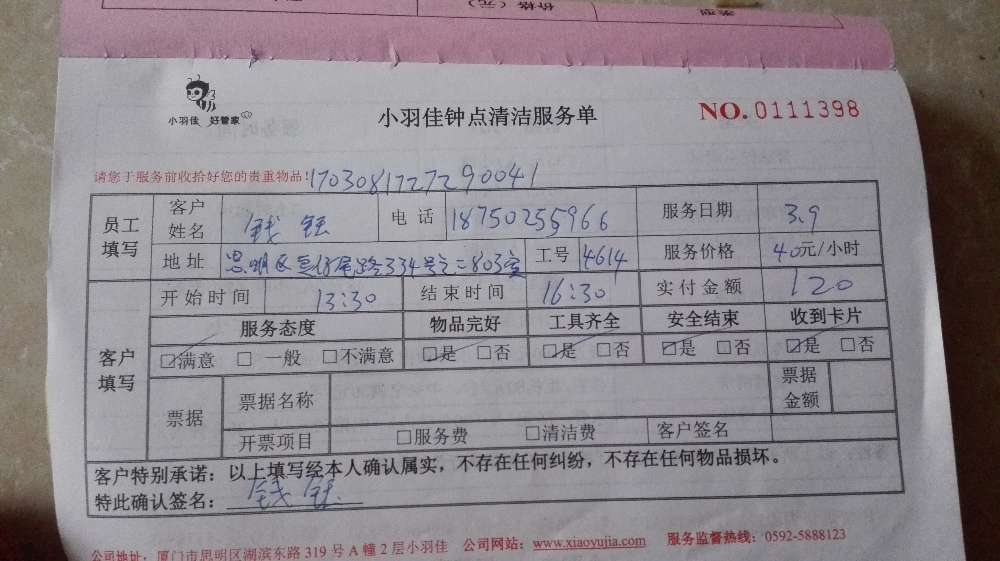 价格（元）
类型
小羽佳 好管家
小羽佳钟点清洁服务单
NO.0111398
请您于服务前收拾好您的贵重物品！170308172729 0041
员工填写 客户姓名 钱 电话 18750255966 服务日期 3.9
地址 思明区 尾路334号之二803室 工号 4614 服务价格 40元/小时
客户填写 开始时间 13:30 结束时间 16:30 实付金额 120
服务态度 物品完好 工具齐全 安全结束 收到卡片
☑满意 □一般 □不满意 ☑是 □否 ☑是 □否 ☑是 □否 ☑是 □否
票据 票据名称 票据金额
开票项目 □服务费 □清洁费 客户签名
客户特别承诺：以上填写经本人确认属实，不存在任何纠纷，不存在任何物品损坏。
特此确认签名：钱
公司地址：厦门市思明区湖滨东路 319 号 A 幢 2 层小羽佳 公司网站：www.xiaoyujia.com 服务监督热线：0592-5888123